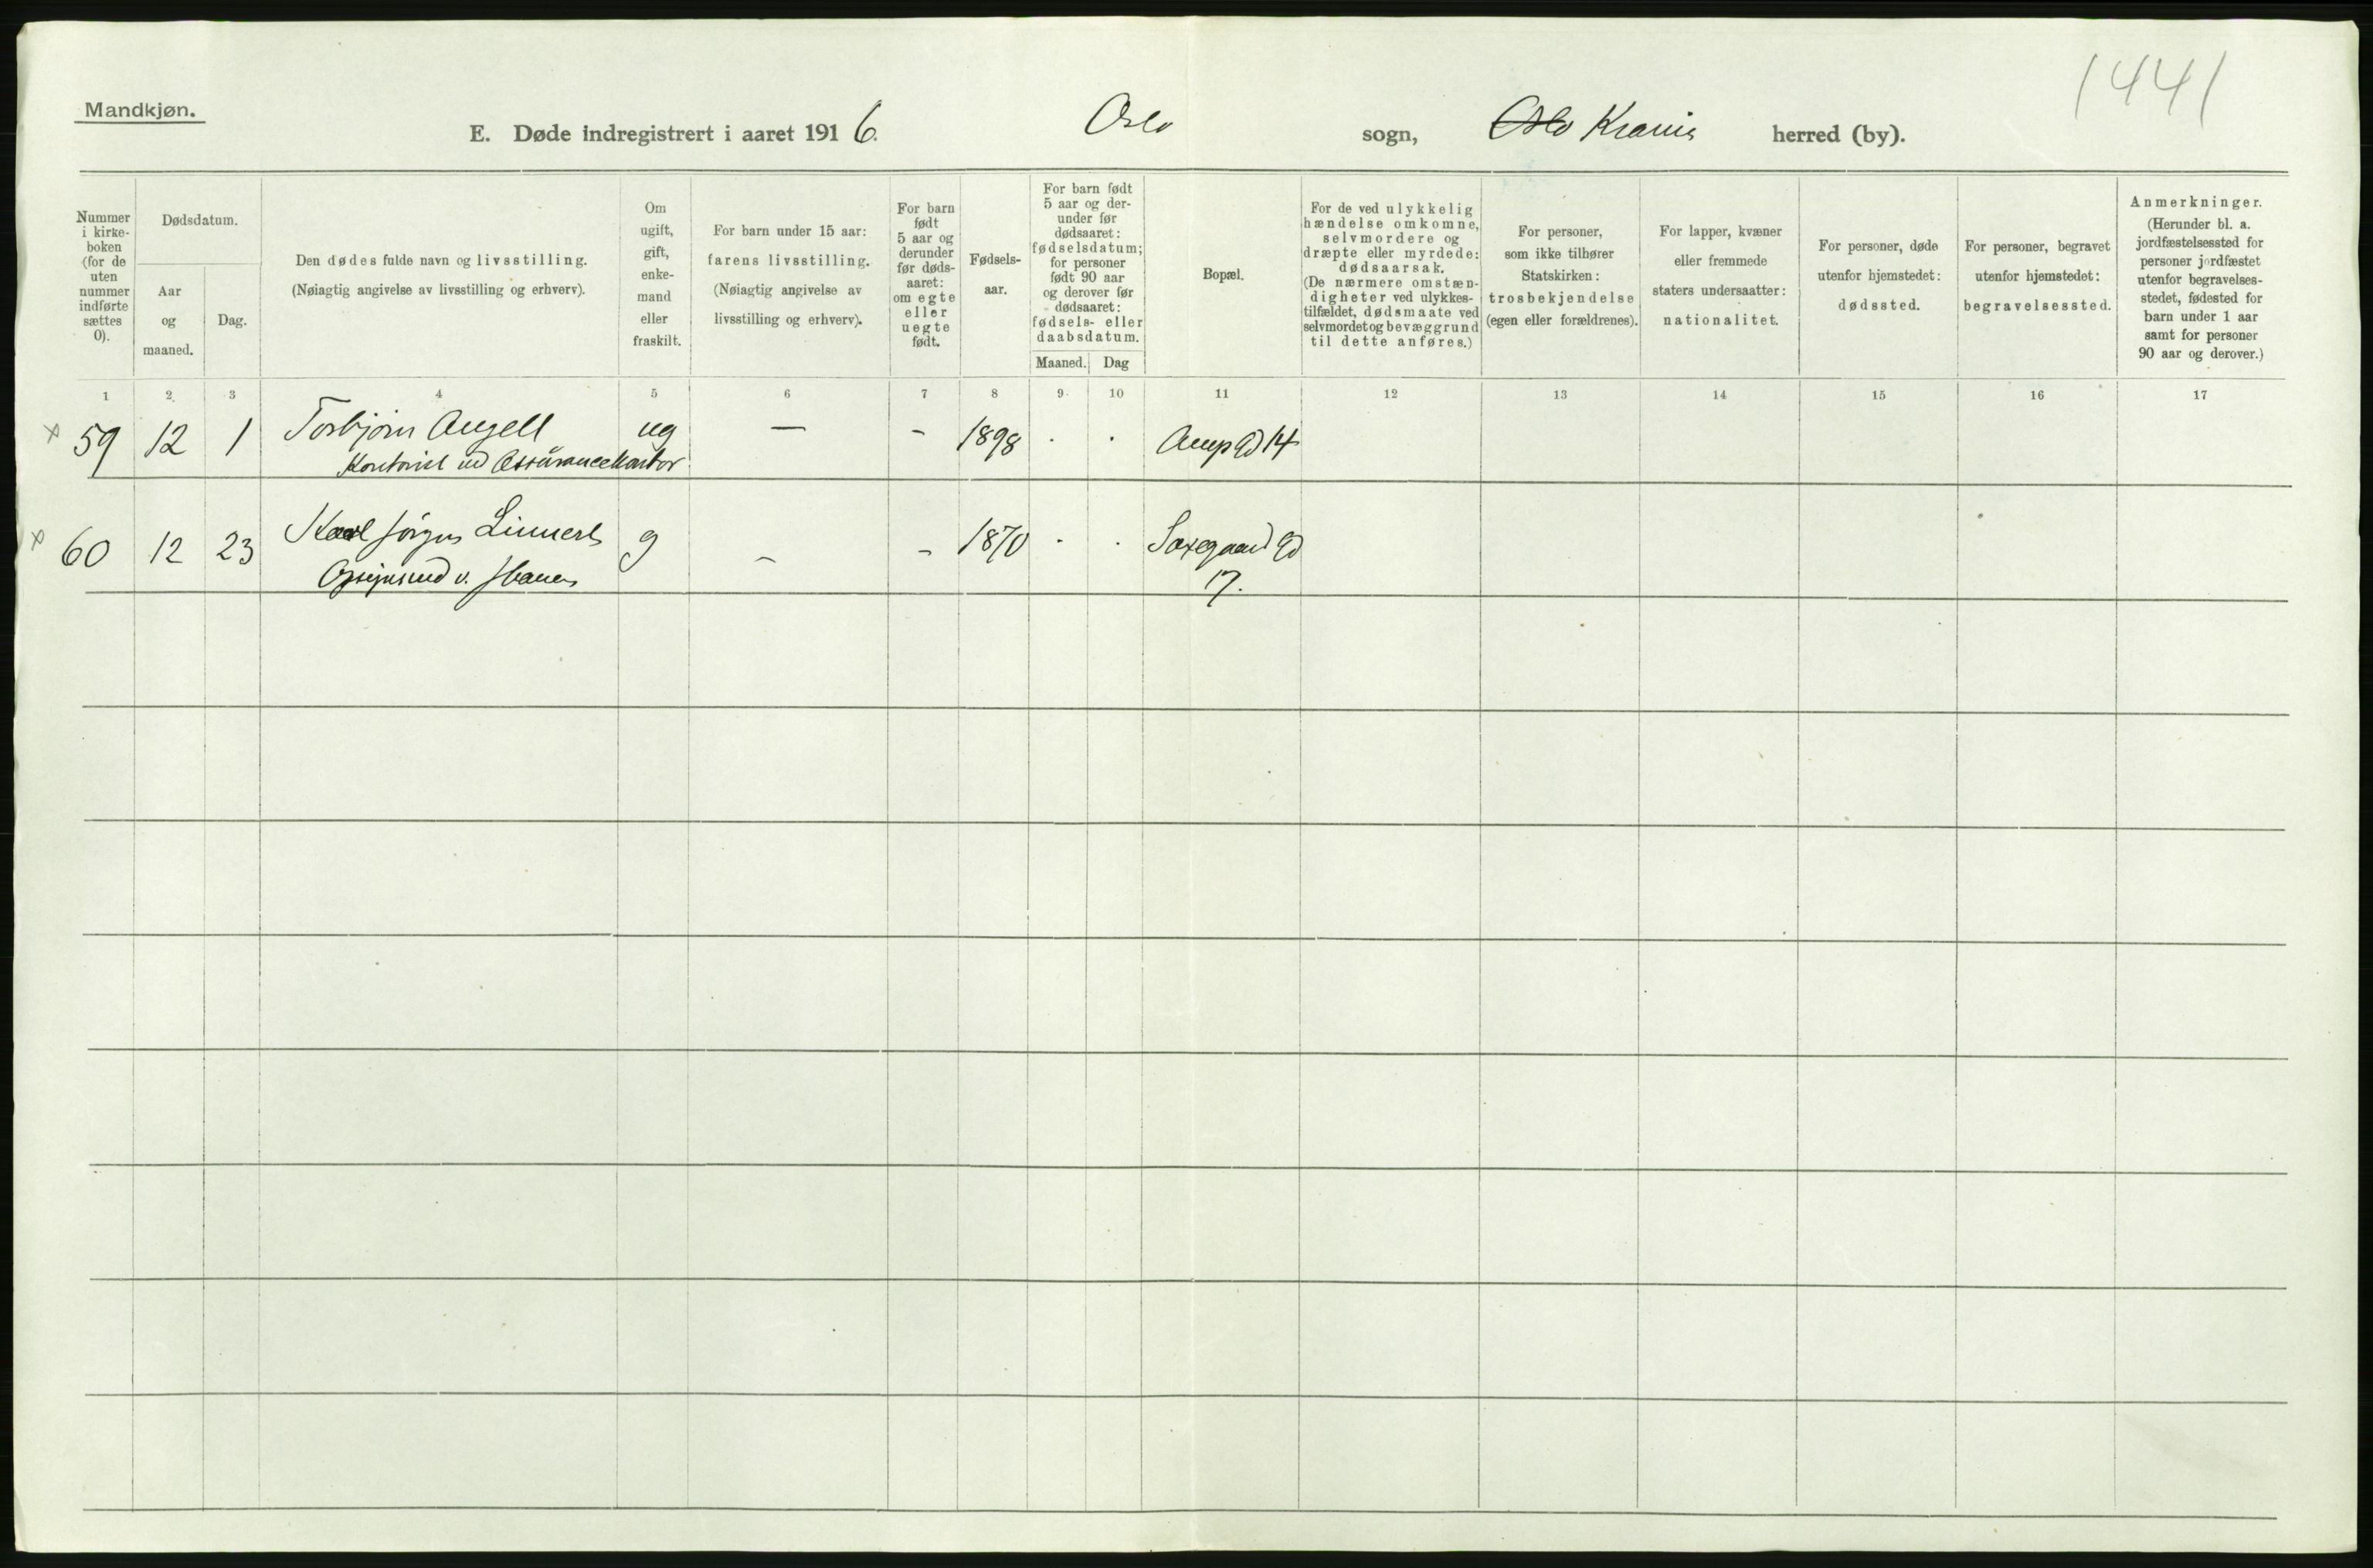 1441
Mandkjøn.
E. Døde indregistrert i aaret 1916. Oslo sogn, Oslo Krania herred (by).
Nummer
i kirke-
boken
(for de
uten
nummer
indførte
sættes
0).
Dødsdatum.
Aar
og
maaned.
Dag.
Den dødes fulde navn og livsstilling.
(Nøiagtig angivelse av livsstilling og erhverv).
Om
ugift,
gift,
enke-
mand
eller
fraskilt.
For barn under 15 aar:
farens livsstilling.
(Nøiagtig angivelse av
livsstilling og erhverv).
For barn
født
5 aar og
derunder
før døds-
aaret:
om egte
eller
uegte
født.
Fødsels-
aar.
For barn født
5 aar og der-
under før
dødsaaret:
fødselsdatum;
for personer
født 90 aar
og derover før
dødsaaret:
fødsels- eller
daabsdatum.
Maaned.
Dag
Bopæl.
For de ved ulykkelig
hændelse omkomne,
selvmordere og
dræpte eller myrdede:
dødsaarsak.
(De nærmere omstæn-
digheter ved ulykkes-
tilfældet, dødsmaate ved
selvmordet og bevæggrund
til dette anføres.)
For personer,
som ikke tilhører
Statskirken:
trosbekjendelse
(egen eller forældrenes).
For lapper, kvæner
eller fremmede
staters undersaatter:
nationalitet.
For personer, døde
utenfor hjemstedet:
dødssted.
For personer, begravet
utenfor hjemstedet:
begravelsessted.
Anmerkninger.
(Herunder bl. a.
jordfæstelsessted for
personer jordfæstet
utenfor begravelses-
stedet, fødested for
barn under 1 aar
samt for personer
90 aar og derover.)
1 2 3 4 5 6 7 8 9 10 11 12 13 14 15 16 17
× 59 12 1 Torbjørn Angell ug — - 1898 . . Amp Gd 14
Kontorist ved Assurancekontor
× 60 12 23 Karl Jørgen Linnerts g - - 1870 . . Saxegaard Gd
Opsynsmd v. 17.